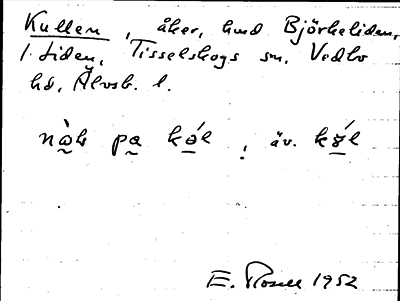 Kullen, åker, hmd Björkeliden,
1. Liden, Tisselskogs sn, Vedbo
hd, Älvsb. l.
pa
, äv.
E. Rosell 1952